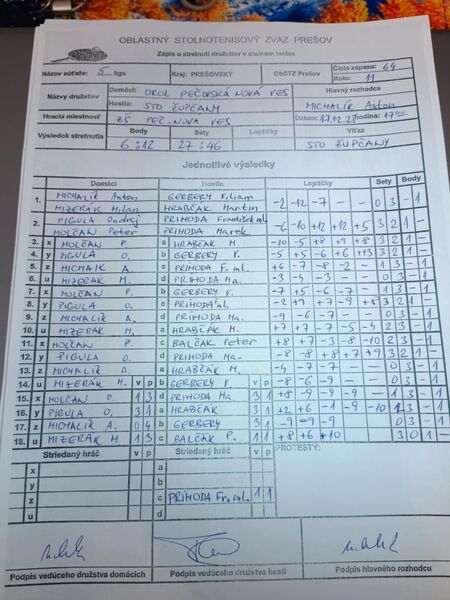 OBLASTNÝ STOLNOTENISOVÝ ZVÄZ PREŠOV
Zápis o stretnutí družstiev v stolnom tenise
Názov súťaže: 5. liga Kraj: PREŠOVSKÝ ObSTZ Prešov Číslo zápasu: 64
Kolo: 11
Názvy družstiev Domáci: OROL PEČOVSKÁ NOVÁ VES Hlavný rozhodca
Hostia: STO ŽUPČANY MICHALÍK Anton
Hracia miestnosť ZŠ PEČ. NOVÁ VES Dátum: 17.12.21 hodina:
Výsledok stretnutia Body Sety Loptičky Víťaz
6:12 27:46 STO ŽUPČANY
Jednotlivé výsledky
Domáci Hostia Loptičky Sety Body
1. MICHALÍK Anton GERBERY Viliam -2 -12 -7 - - 0 3 - 1
MIZERÁK Milan HRABČÁK Martin
2. PIGULA Ondrej PRÍHODA František ml. -6 -10 +12 +12 +5 3 2 1 -
MOLČAN Peter PRÍHODA Marek
3. x MOLČAN P. a HRABČÁK M. -10 -5 +8 +9 +8 3 2 1 -
4. y PIGULA O. b GERBERY V. -5 +5 -6 +6 +13 3 2 1 -
5. z MICHALÍK A. c PRÍHODA F. ml. +6 -7 -8 -2 - 1 3 - 1
6. u MIZERÁK M. d PRÍHODA Ma. -3 -4 -3 - - 0 3 - 1
7. x MOLČAN P. b GERBERY V. -7 -5 -6 - - 0 3 - 1
8. y PIGULA O. c PRÍHODA F. ml. -2 +9 +7 -9 +8 3 2 1 -
9. z MICHALÍK A. d PRÍHODA Ma. -9 -6 -7 - - 0 3 - 1
10. u MIZERÁK M. a HRABČÁK M. +7 +7 -7 -5 -4 2 3 - 1
11. x MOLČAN P. c BALČÁK Peter +8 +7 -3 -8 -10 2 3 - 1
12. y PIGULA O. d PRÍHODA Ma. -8 -8 +8 +7 +9 3 2 1 -
13. z MICHALÍK A. a HRABČÁK M. -4 -7 -7 - - 0 3 - 1
14. u MIZERÁK M. v p b GERBERY V. v p -8 -6 -9 - - 0 3 - 1
15. x MOLČAN P. 1 3 d PRÍHODA Ma. 3 1 +8 -9 -9 -9 - 1 3 - 1
16. y PIGULA O. 3 1 a HRABČÁK 3 1 +2 +6 -1 -9 -10 2 3 - 1
17. z MICHALÍK A. 0 4 b GERBERY 3 1 -9 -9 -9 - - 0 3 - 1
18. u MIZERÁK M 1 3 c BALČÁK P. 1 1 +8 +6 +10 3 0 1 -
Striedaný hráč v p Striedaný hráč v p PROTESTY:
x a
y b
z c PRÍHODA Fr. ml. 1 1
u d
Podpis vedúceho družstva domácich Podpis vedúceho družstva hostí Podpis hlavného rozhodcu